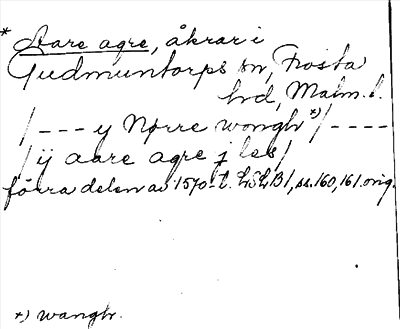 * Aare agre, åkrar i
Gudmuntorps sn, Frosta
hd, Malm. l.
/--- y Nørre wongh *)/----
/ij aare agre j læs/
förra delen av 1570 t. LSLB 1, ss. 160, 161. orig.
*) wangh.